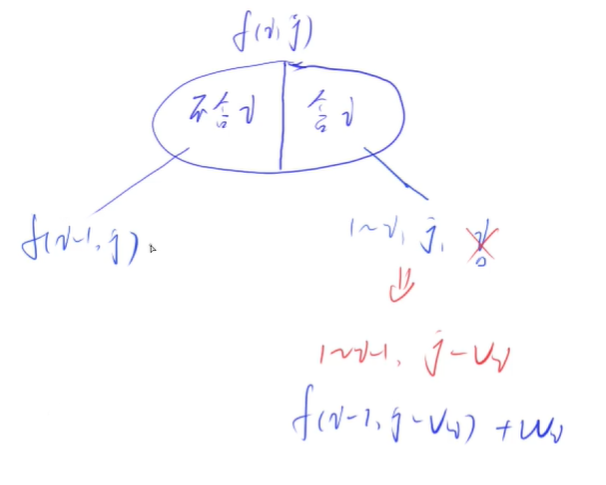 f(i, j)
不含i 含i
f(i-1, j)
1~i, j, 含i
1~i-1, j-vi
f(i-1, j-vi) + wi